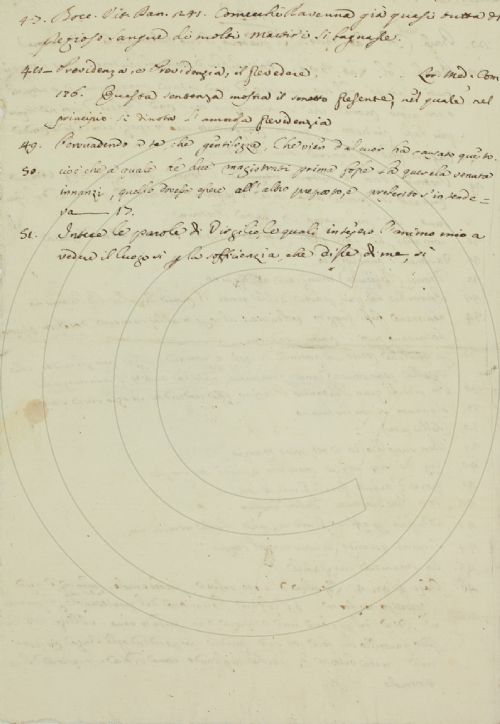 47. Bocc. Vit. Dan. 241. Comecchè Ravenna già quasi tutta del
prezioso sangue di molti martiri si bagnasse.
48 — Providenza, e Providenzia, il prevedere. Lor. Med. Com
126. Questa sentenza mostra il senetto presente, nel quale nel
principio si dinota l'amorosa previdenzia
49. Persuadendo a te che gentilezza, Che vien dal cuor ha causato questo
50. cioè che a quale de due magistrati prima fosse la querela venuta
innanzi, quello dovesse essere all'altro preposto, e preferito s'intende=
va — 17.
51. Intese le parole di Virgilio, le quali intesero l'animo mio a
vedere il luogo sì per la sofficienzia, che disse di me, sì